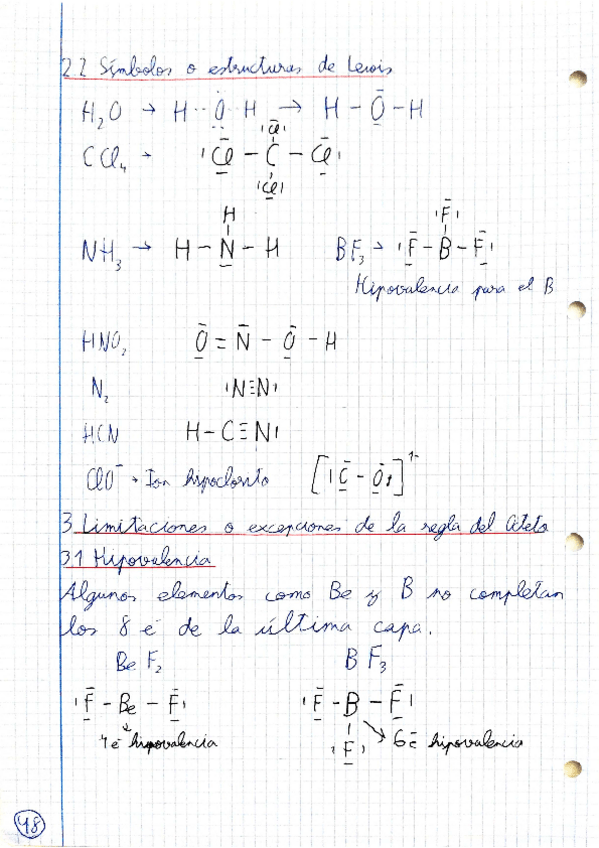 2.2 Símbolos o estructuras de Lewis
H₂O → H ·· O ·· H → H - O - H
|Cl|
CCl₄ → |Cl - C - Cl|
|Cl|
H
NH₃ → H - N - H
|F|
BF₃ → |F - B - F|
Hipovalencia para el B
HNO₂ O = N - O - H
N₂ |N≡N|
HCN H - C≡N|
ClO⁻ → Ion hipoclorito [|C - O|]¹⁻
3 Limitaciones o excepciones de la regla del octeto
3.1 Hipovalencia
Algunos elementos como Be y B no completan
los 8 e⁻ de la última capa.
Be F₂ B F₃
|F - Be - F| |F - B - F|
|F|
4e⁻ hipovalencia 6e⁻ hipovalencia
48